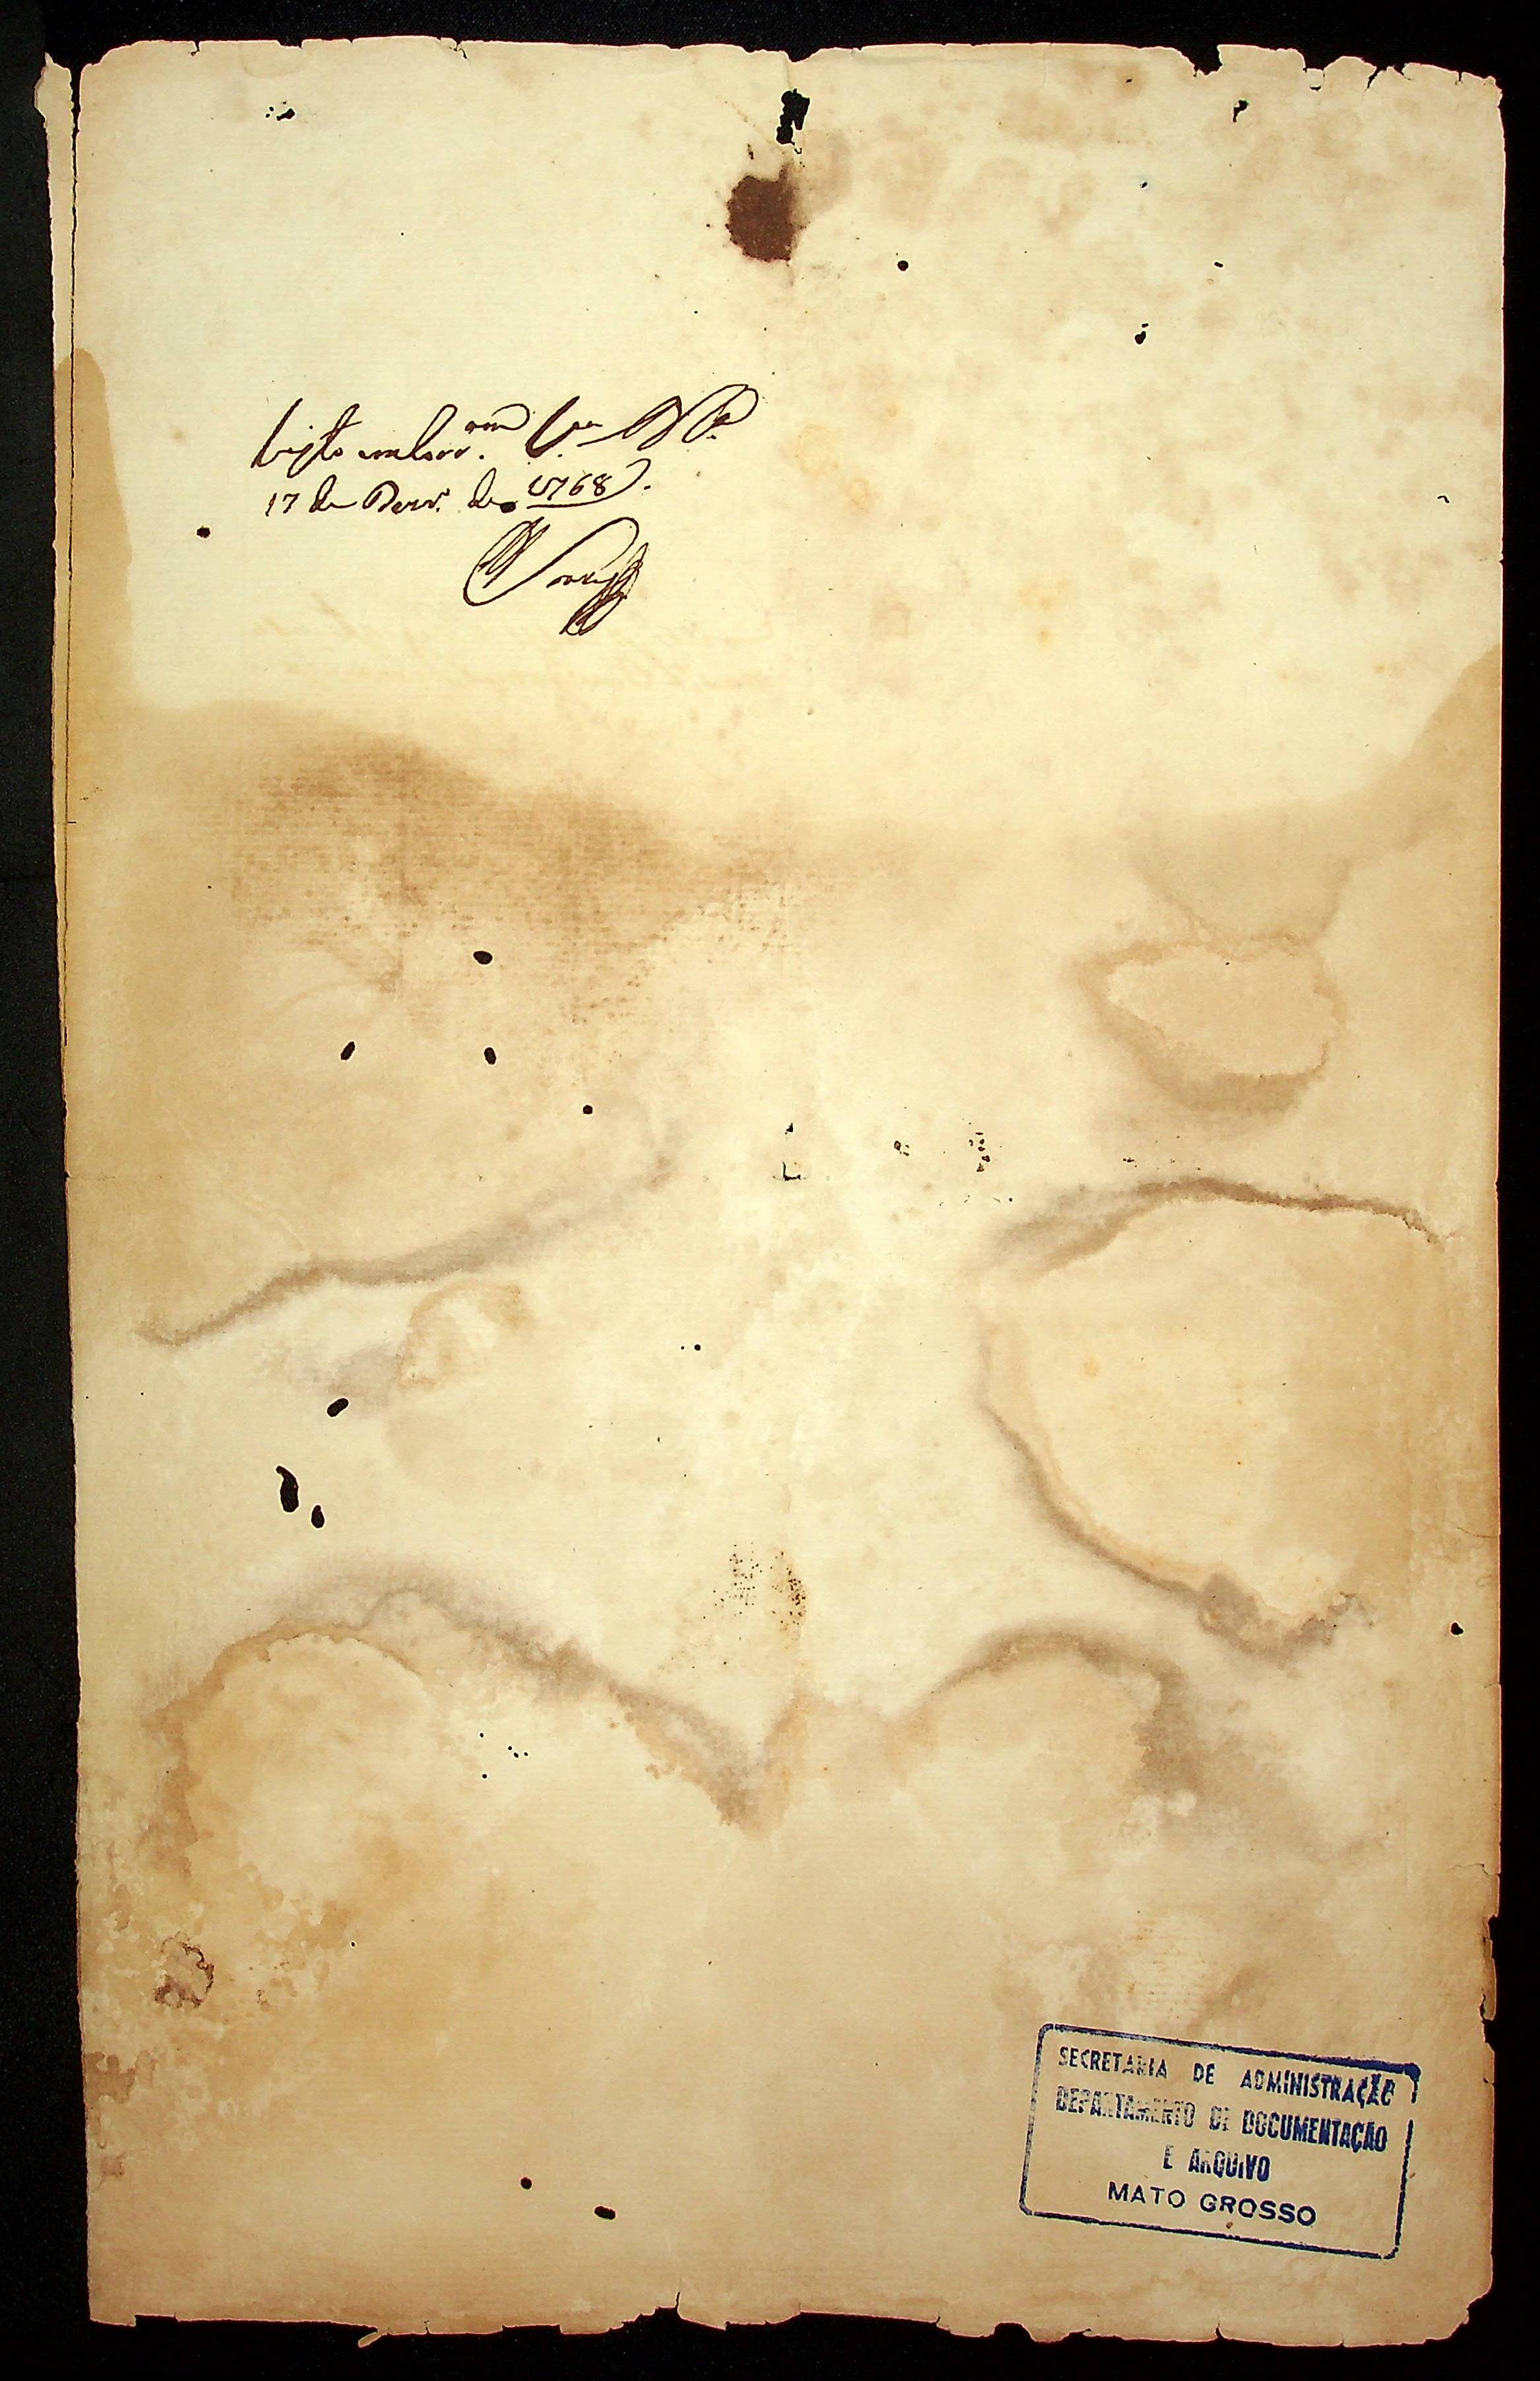 Visto em Corr.am V.a
17 de Dezr.o de 1768.
SECRETARIA DE ADMINISTRAÇÃO
DEPARTAMENTO DE DOCUMENTAÇÃO
E ARQUIVO
MATO GROSSO